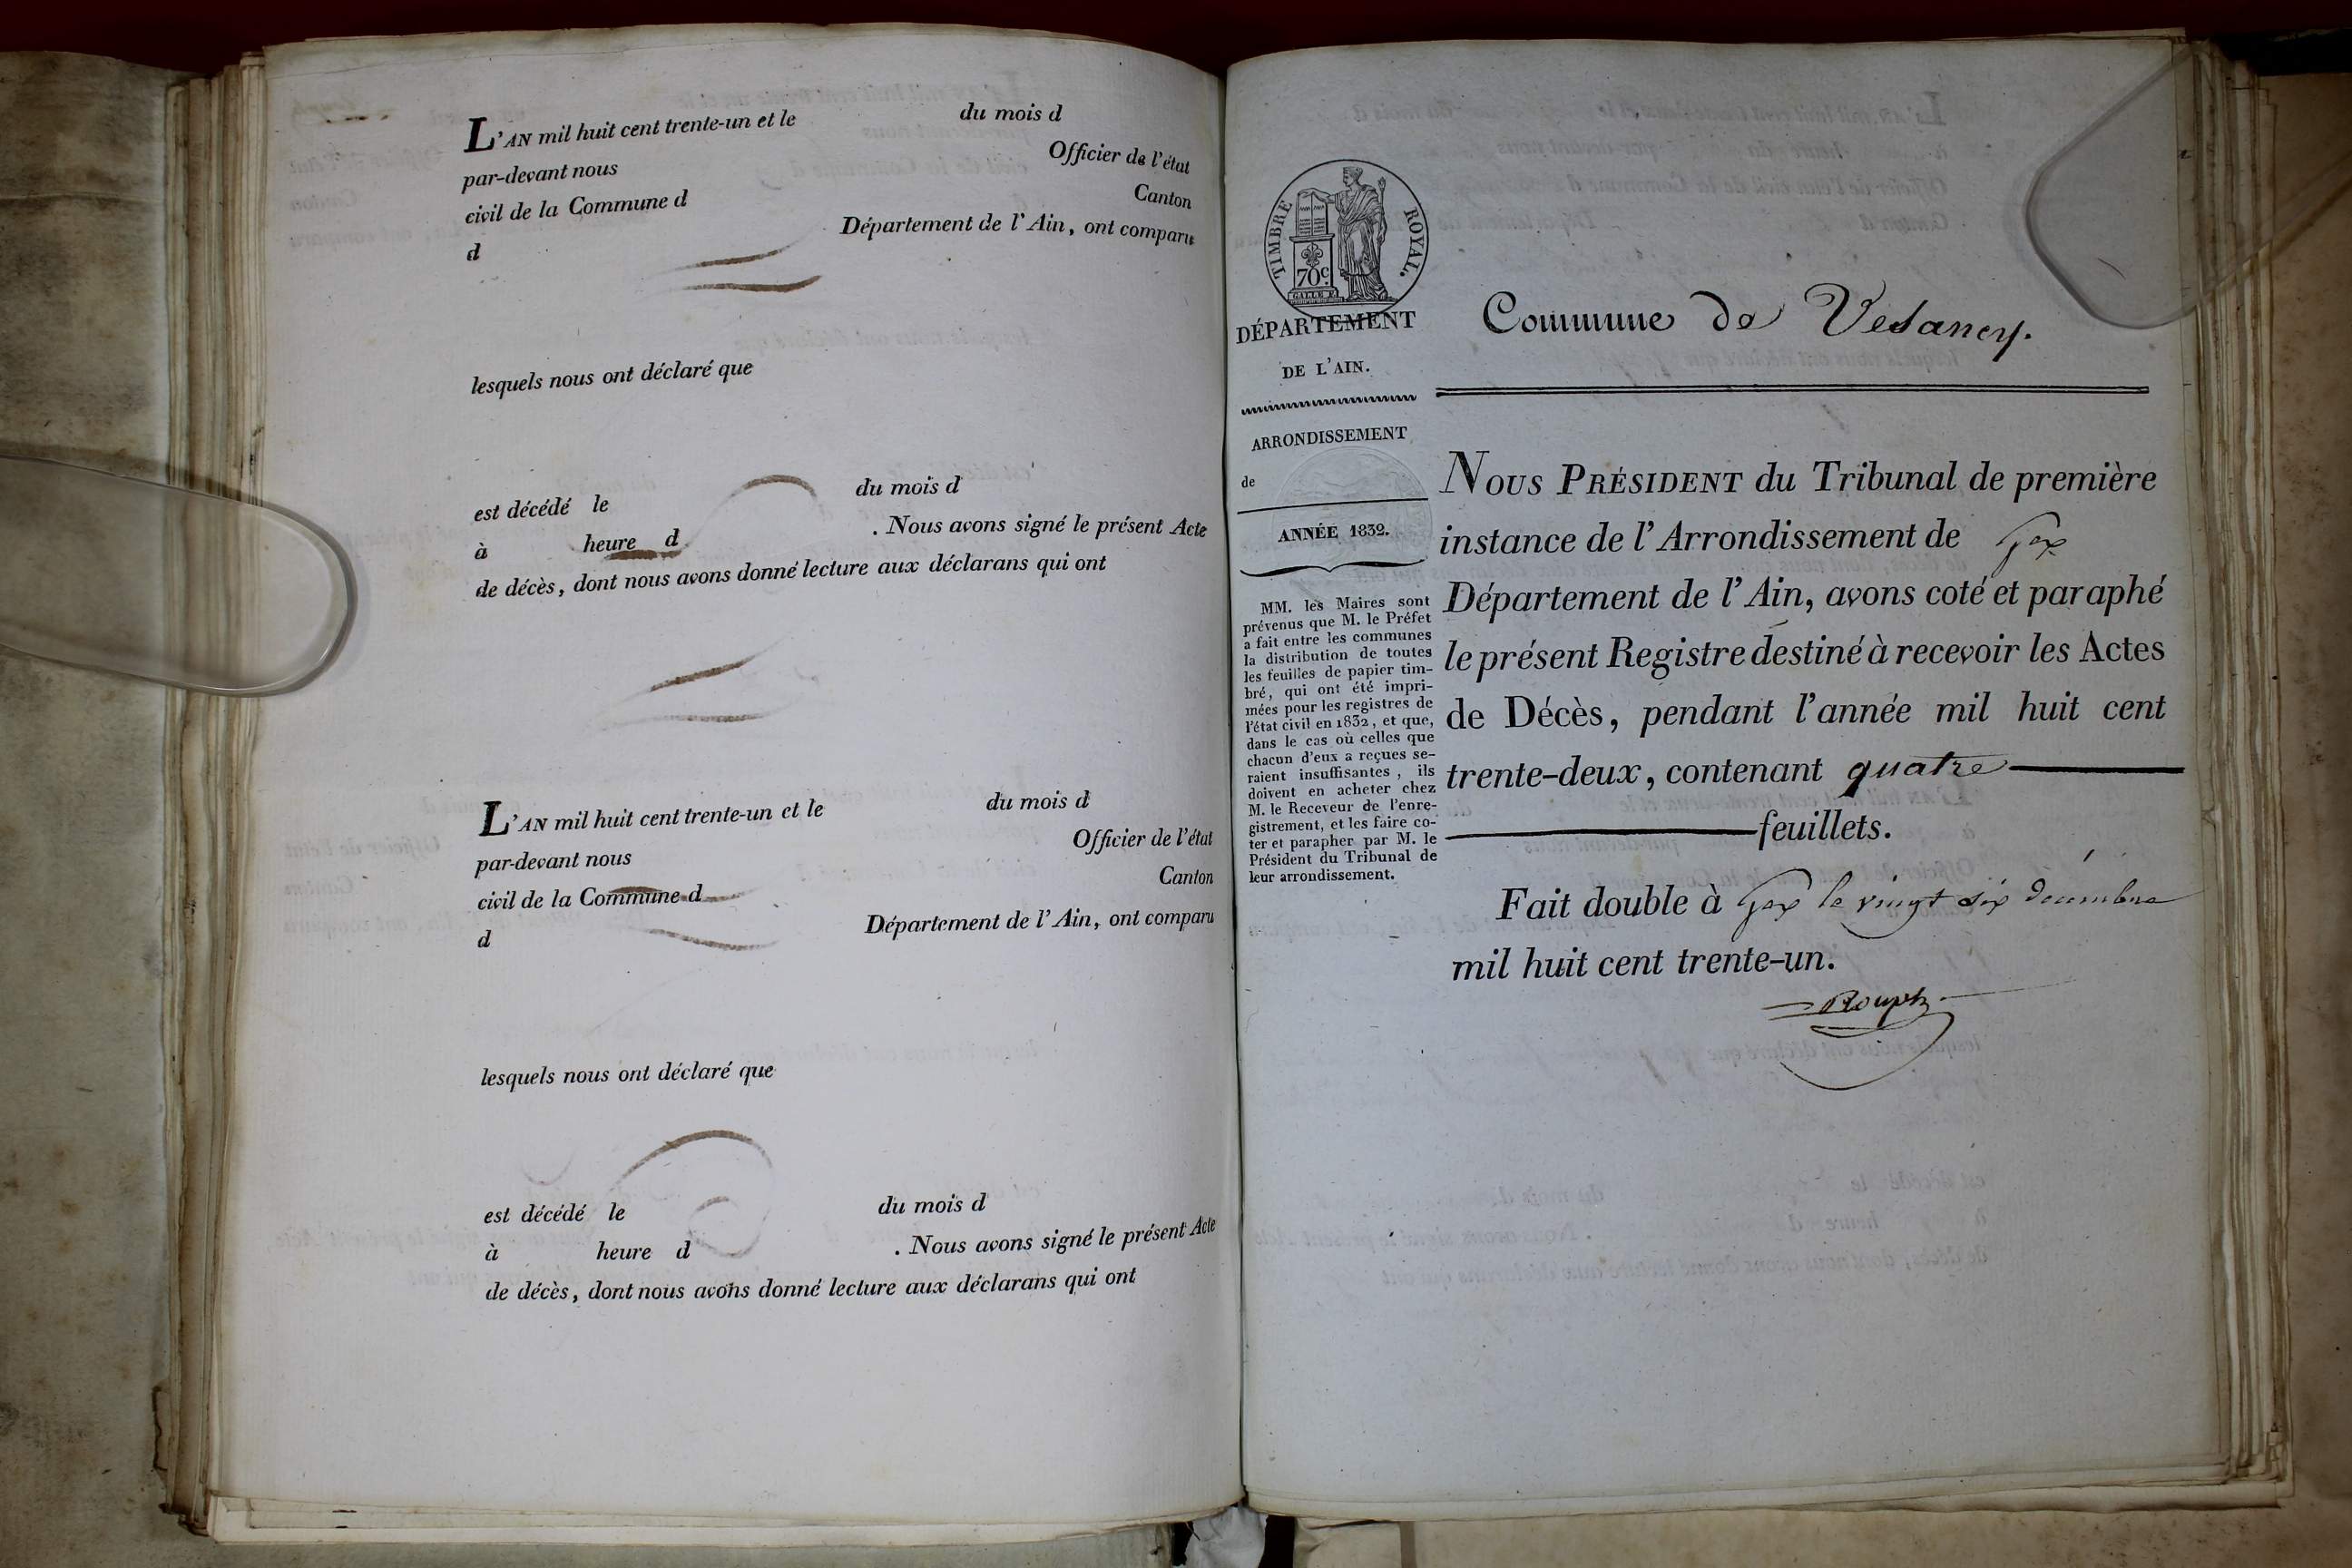 L'AN mil huit cent trente-un et le du mois d
par-devant nous Officier de l'état
civil de la Commune d Canton
d Département de l'Ain, ont comparu
lesquels nous ont déclaré que
est décédé le du mois d
à heure d . Nous avons signé le présent Acte
de décès, dont nous avons donné lecture aux déclarans qui ont
L'AN mil huit cent trente-un et le du mois d
par-devant nous Officier de l'état
civil de la Commune d Canton
d Département de l'Ain, ont comparu
lesquels nous ont déclaré que
est décédé le du mois d
à heure d . Nous avons signé le présent Acte
de décès, dont nous avons donné lecture aux déclarans qui ont
TIMBRE ROYAL.
70c.
DÉPARTEMENT
DE L'AIN.
ARRONDISSEMENT
de
ANNÉE 1832.
MM. les Maires sont
prévenus que M. le Préfet
a fait entre les communes
la distribution de toutes
les feuilles de papier tim-
bré, qui ont été impri-
mées pour les registres de
l'état civil en 1832, et que,
dans le cas où celles que
chacun d'eux a reçues se-
raient insuffisantes, ils
doivent en acheter chez
M. le Receveur de l'enre-
gistrement, et les faire co-
ter et parapher par M. le
Président du Tribunal de
leur arrondissement.
Commune de Vesancy.
NOUS PRÉSIDENT du Tribunal de première
instance de l'Arrondissement de Gex
Département de l'Ain, avons coté et paraphé
le présent Registre destiné à recevoir les Actes
de Décès, pendant l'année mil huit cent
trente-deux, contenant quatre
feuillets.
Fait double à Gex le vingt six décembre
mil huit cent trente-un.
Rouph